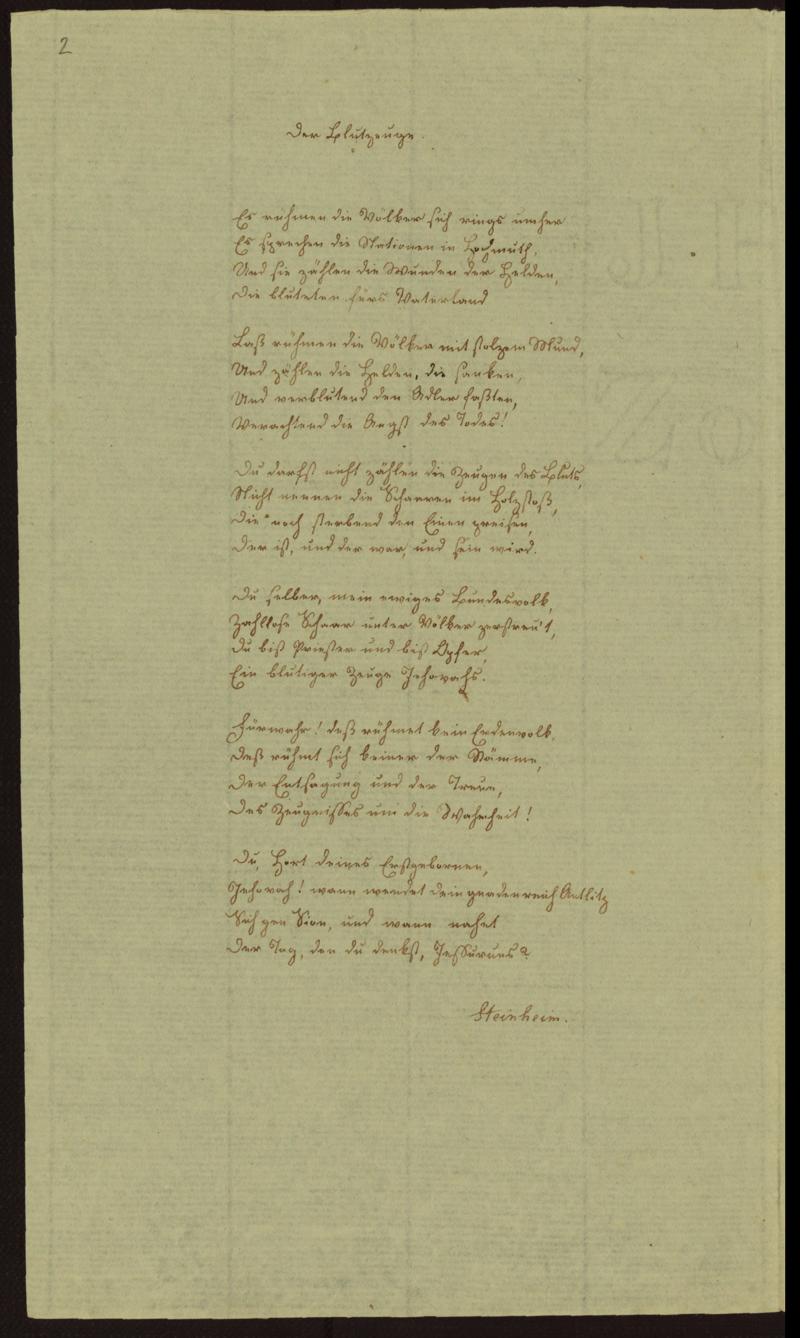 2
Der Blutzeuge.
Es rühmen die Völker sich rings umher
Es sprechen die Nationen in Hochmuth,
Und sie zählen die Wunden der Helden,
Die bluteten fürs Vaterland
Laß rühmen die Völker mit stolzem Mund,
Und zählen die Helden, die sanken,
Und verblutend den Adler faßten,
Verachtend die Angst des Todes!
Du darfst nicht zählen die Zeugen des Bluts,
Nicht nennen die Schaaren im Holzstoß,
Die noch sterbend den Einen preisen,
Der ist, und der war, und sein wird.
Du selber, mein ewiges Bundesvolk,
Zahllose Schaar unter Völker zerstreu't,
Du bist Priester und bist Opfer,
Ein blutiger Zeuge Jehovahs.
Fürwahr! deß rühmet kein Erdenvolk,
Deß rühmt sich keiner der Stämme,
Der Entsagung und der Treue,
Des Zeugnisses um die Wahrheit!
Du, Hort deines Erstgebornen,
Jehovah! wann wendet dein gnadenreich Antlitz
Sich gen Sion, und wann nahet
Der Tag, den du denkst, Jessuruns?
Steinheim.